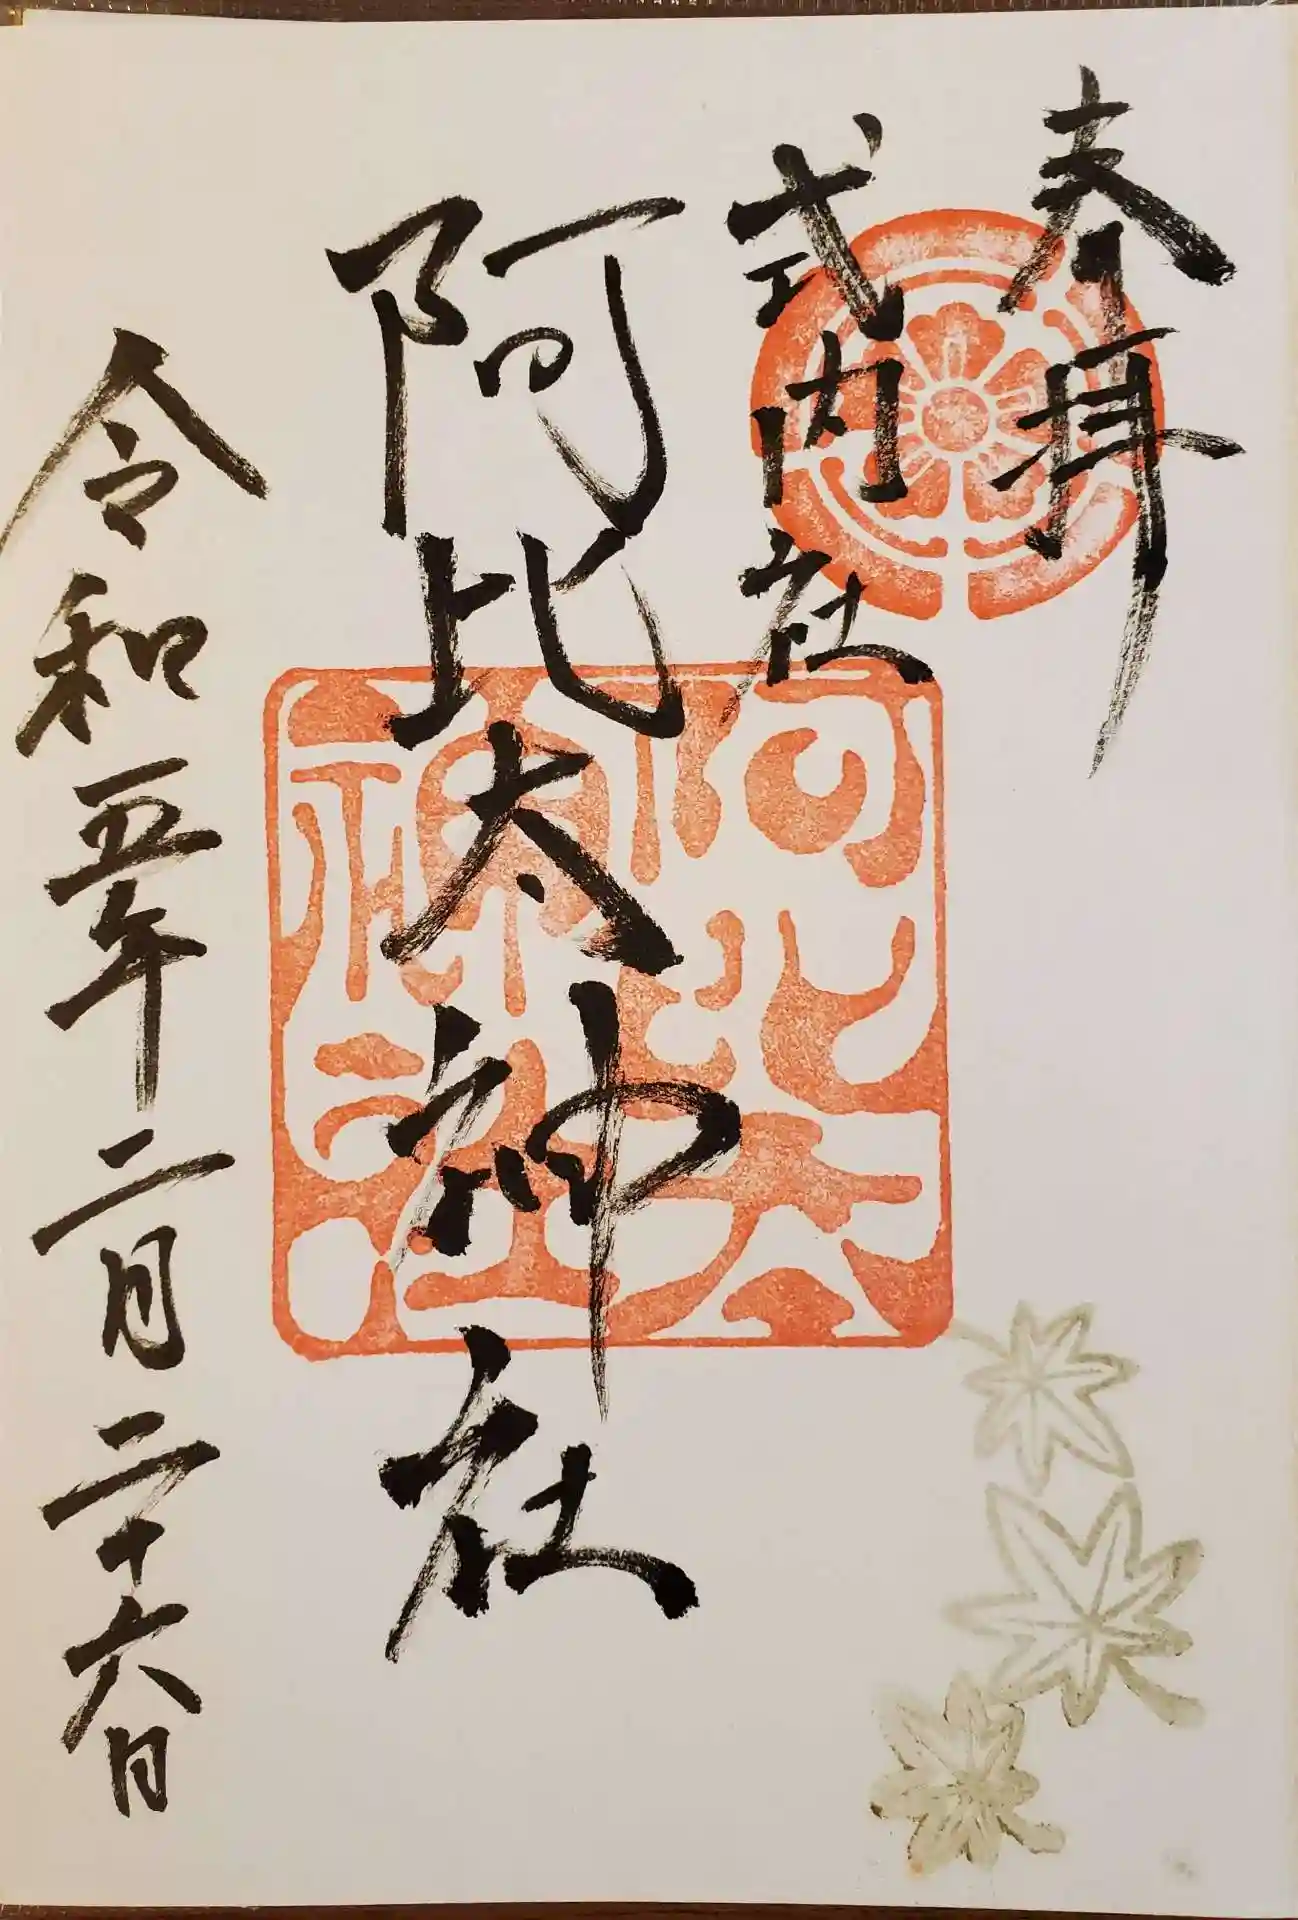 奉拝
式内社
阿比太神社
令和五年二月二十六日
阿比太
神社